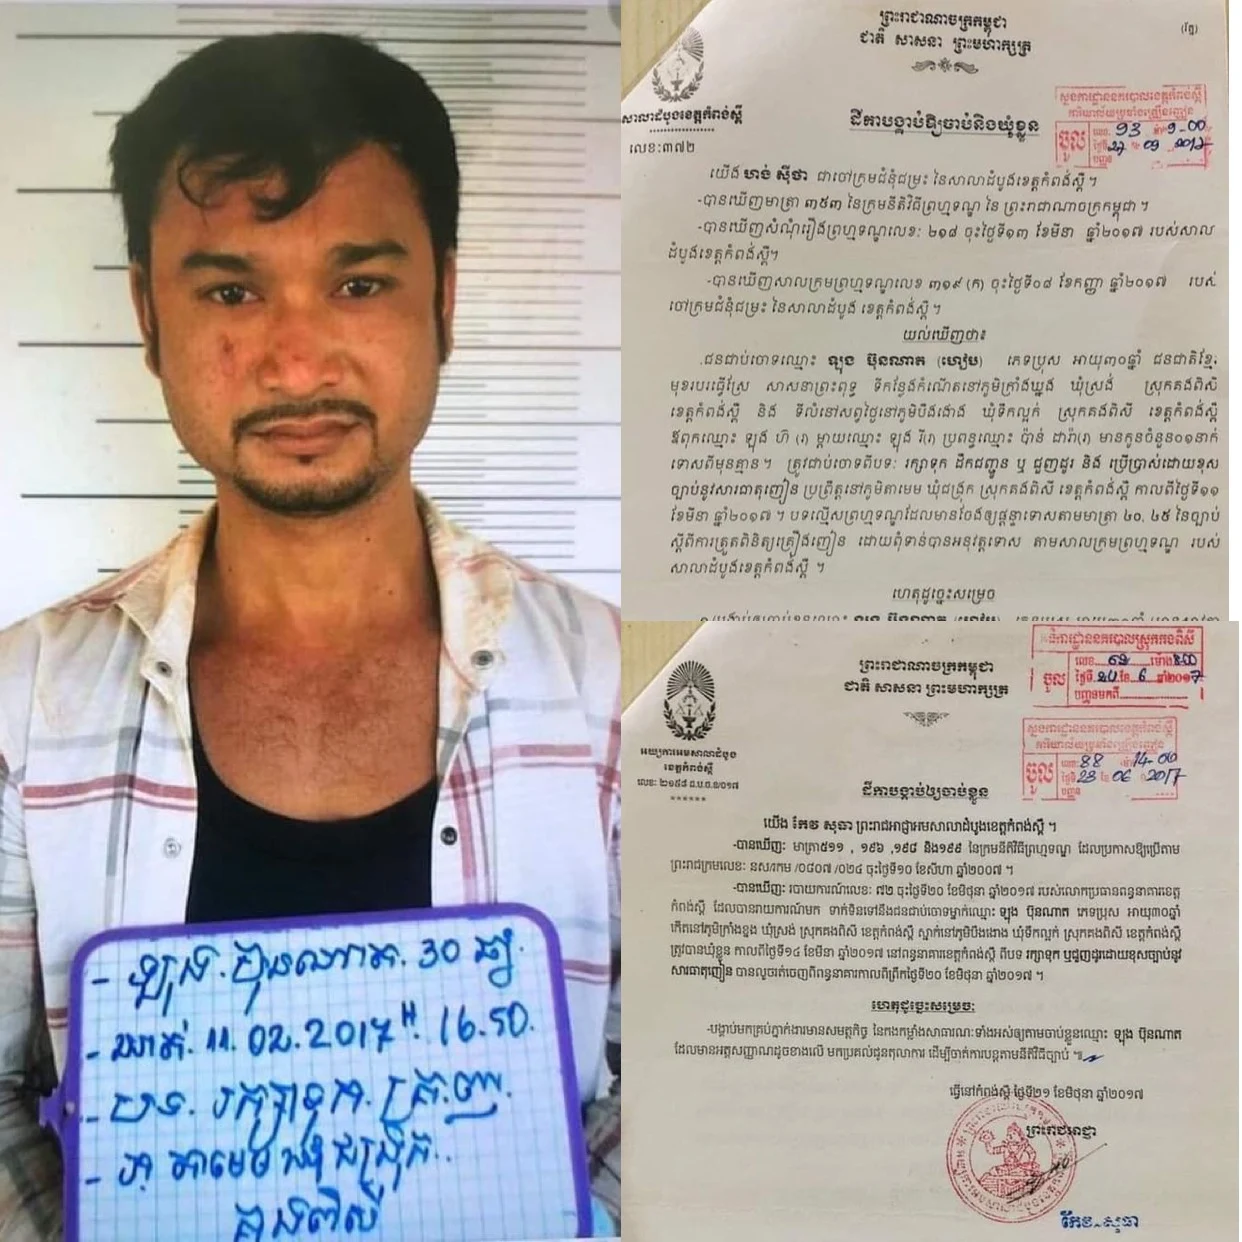 - ឡុង ប៊ុនណាត. 30 ឆ្នាំ.
- ឃាត់. 11. 02. 2017 H. 16.50.
- បទ. រក្សាទុក. គ្រ.ញ.
- ភូ.តាមេម ឃុំ ជង្រុក..
គងពិសី
ព្រះរាជាណាចក្រកម្ពុជា
ជាតិ សាសនា ព្រះមហាក្សត្រ
សាលាដំបូងខេត្តកំពង់ស្ពឺ
លេខ:៣៧២
ដីកាបង្គាប់ឱ្យចាប់និងឃុំខ្លួន
ស្នងការដ្ឋាននគរបាលខេត្តកំពង់ស្ពឺ
ការិយាល័យប្រឆាំងគ្រឿងញៀន
ចូល
លេខ. 93 ម៉ោ 9-00
ថ្ងៃទី 27 ខែ 09 2017
បញ្ជូន
យើង ហង់ ស៊ីថា ជាចៅក្រមជំនុំជម្រះ នៃសាលាដំបូងខេត្តកំពង់ស្ពឺ ។
-បានឃើញមាត្រា ៣៥៣ នៃក្រមនីតិវិធីព្រហ្មទណ្ឌ នៃ ព្រះរាជាណាចក្រកម្ពុជា ។
-បានឃើញសំណុំរឿងព្រហ្មទណ្ឌលេខ: ២១៨ ចុះថ្ងៃទី១៣ ខែមីនា ឆ្នាំ២០១៧ របស់សាលា
ដំបូងខេត្តកំពង់ស្ពឺ។
-បានឃើញសាលក្រមព្រហ្មទណ្ឌលេខ ៣១៩ (ក) ចុះថ្ងៃទី០៨ ខែកញ្ញា ឆ្នាំ២០១៧ របស់
ចៅក្រមជំនុំជម្រះ នៃសាលាដំបូង ខេត្តកំពង់ស្ពឺ ។
យល់ឃើញថា៖
.ជនជាប់ចោទឈ្មោះ ឡុង ប៊ុនណាត (ហៀប) ភេទប្រុស អាយុ៣០ឆ្នាំ ជនជាតិខ្មែរ
មុខរបរធ្វើស្រែ សាសនាព្រះពុទ្ធ ទីកន្លែងកំណើតនៅភូមិក្រាំងឃ្នង ឃុំស្រង់ ស្រុកគងពិសី
ខេត្តកំពង់ស្ពឺ និង ទីលំនៅសព្វថ្ងៃនៅភូមិបឹងដោង ឃុំទឹកល្អក់ ស្រុកគងពិសី ខេត្តកំពង់ស្ពឺ
ឪពុកឈ្មោះ ឡុង ហ៊ (រ) ម្តាយឈ្មោះ ឡុង រី(រ) ប្រពន្ធឈ្មោះ ប៉ាន់ ដារ៉ា(រ) មានកូនចំនួន០១នាក់
ទោសពីមុនគ្មាន ។ ត្រូវជាប់ចោទពីបទ: រក្សាទុក ដឹកជញ្ជូន ឬ ជួញដូរ និង ប្រើប្រាស់ដោយខុស
ច្បាប់នូវសារធាតុញៀន ប្រព្រឹត្តនៅភូមិតាមេម ឃុំជង្រុក ស្រុកគងពិសី ខេត្តកំពង់ស្ពឺ កាលពីថ្ងៃទី១១
ខែមីនា ឆ្នាំ២០១៧ ។ បទល្មើសព្រហ្មទណ្ឌដែលមានចែងឲ្យផ្តន្ទាទោសតាមមាត្រា ៤០, ៤៥ នៃច្បាប់
ស្តីពីការត្រួតពិនិត្យគ្រឿងញៀន ដោយពុំទាន់បានអនុវត្តទោស តាមសាលក្រមព្រហ្មទណ្ឌ របស់
សាលាដំបូងខេត្តកំពង់ស្ពឺ ។
ហេតុដូច្នេះសម្រេច
ព្រះរាជាណាចក្រកម្ពុជា
ជាតិ សាសនា ព្រះមហាក្សត្រ
អយ្យការអមសាលាដំបូង
ខេត្តកំពង់ស្ពឺ
ដីកាបង្គាប់ឲ្យចាប់ខ្លួន
អធិការដ្ឋាននគរបាលស្រុកគងពិសី
ចូល
បញ្ជូនមកពី
ស្នងការដ្ឋាននគរបាលខេត្តកំពង់ស្ពឺ
ការិយាល័យប្រឆាំងគ្រឿងញៀន
ចូល
លេខ: 88 ម៉ោ 14-00
ថ្ងៃទី 23 ខែ 06 2017
បញ្ជូន
យើង កែវ សុធា ព្រះរាជអាជ្ញាអមសាលាដំបូងខេត្តកំពង់ស្ពឺ ។
-បានឃើញ: មាត្រា៥១១ , ១៩៦ ,១៩៨ និង១៩៩ នៃក្រមនីតិវិធីព្រហ្មទណ្ឌ ដែលប្រកាសឱ្យប្រើតាម
ព្រះរាជក្រមលេខ: នស/រកម /០៨០៧ /០២៤ ចុះថ្ងៃទី១០ ខែសីហា ឆ្នាំ២០០៧ ។
-បានឃើញ: របាយការណ៍លេខ: ៧២ ចុះថ្ងៃទី២០ ខែមិថុនា ឆ្នាំ២០១៧ របស់លោកប្រធានពន្ធនាគារខេត្ត
កំពង់ស្ពឺ ដែលបានរាយការណ៍មក ទាក់ទិនទៅនឹងជនជាប់ចោទម្នាក់ឈ្មោះ ឡុង ប៊ុនណាត ភេទប្រុស អាយុ៣០ឆ្នាំ
កើតនៅភូមិក្រាំងខ្នង ឃុំស្រង់ ស្រុកគងពិសី ខេត្តកំពង់ស្ពឺ ស្នាក់នៅភូមិបឹងដោង ឃុំទឹកល្អក់ ស្រុកគងពិសី ខេត្តកំពង់ស្ពឺ
ត្រូវបានឃុំខ្លួន កាលពីថ្ងៃទី១៤ ខែមីនា ឆ្នាំ២០១៧ នៅពន្ធនាគារខេត្តកំពង់ស្ពឺ ពីបទ រក្សាទុក ឬជួញដូរដោយខុសច្បាប់នូវ
សារធាតុញៀន បានលួចរត់ចេញពីពន្ធនាគារកាលពីព្រឹកថ្ងៃទី២០ ខែមិថុនា ឆ្នាំ២០១៧ ។
ហេតុដូច្នេះសម្រេច:
-បង្គាប់មកគ្រប់ភ្នាក់ងារមានសមត្ថកិច្ច នៃកងកម្លាំងសាធារណ:ទាំងអស់ឲ្យតាមចាប់ខ្លួនឈ្មោះ ឡុង ប៊ុនណាត
ដែលមានអត្តសញ្ញាណដូចខាងលើ មកប្រគល់ជូនតុលាការ ដើម្បីចាត់ការបន្តតាមនីតិវិធីច្បាប់ ៕
ធ្វើនៅកំពង់ស្ពឺ ថ្ងៃទី២១ ខែមិថុនា ឆ្នាំ២០១៧
ព្រះរាជអាជ្ញា
កែវ សុធា